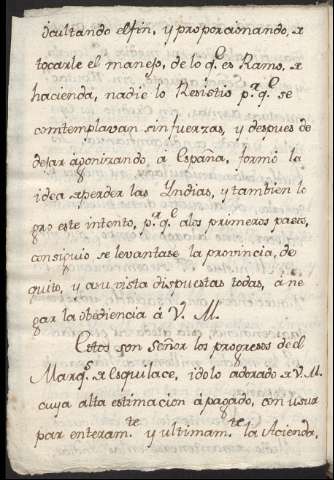 ocultando el fin, y proporcionando, a
tocarle el manejo, de lo q.e es Ramo, a
hacienda, nadie lo Resistio p.r q.e se
comtemplavan sin fuerzas, y despues de
dejar agonizando, a España, formó la
idea a perder las Yndias, y tambien lo
gro este intento, p.r q.e a los primeros pasos,
consiguio se levantase la provincia, de
quito, y a su vista dispuestas todas, a ne
gar la obediencia á V. M.
Estos son Señor los progresos de el
Marq.s a Esquilace, idolo adorado a V. M.
cuya alta estimacion á pagado, con usur
par enteram.te y ultimam.te la Acienda,